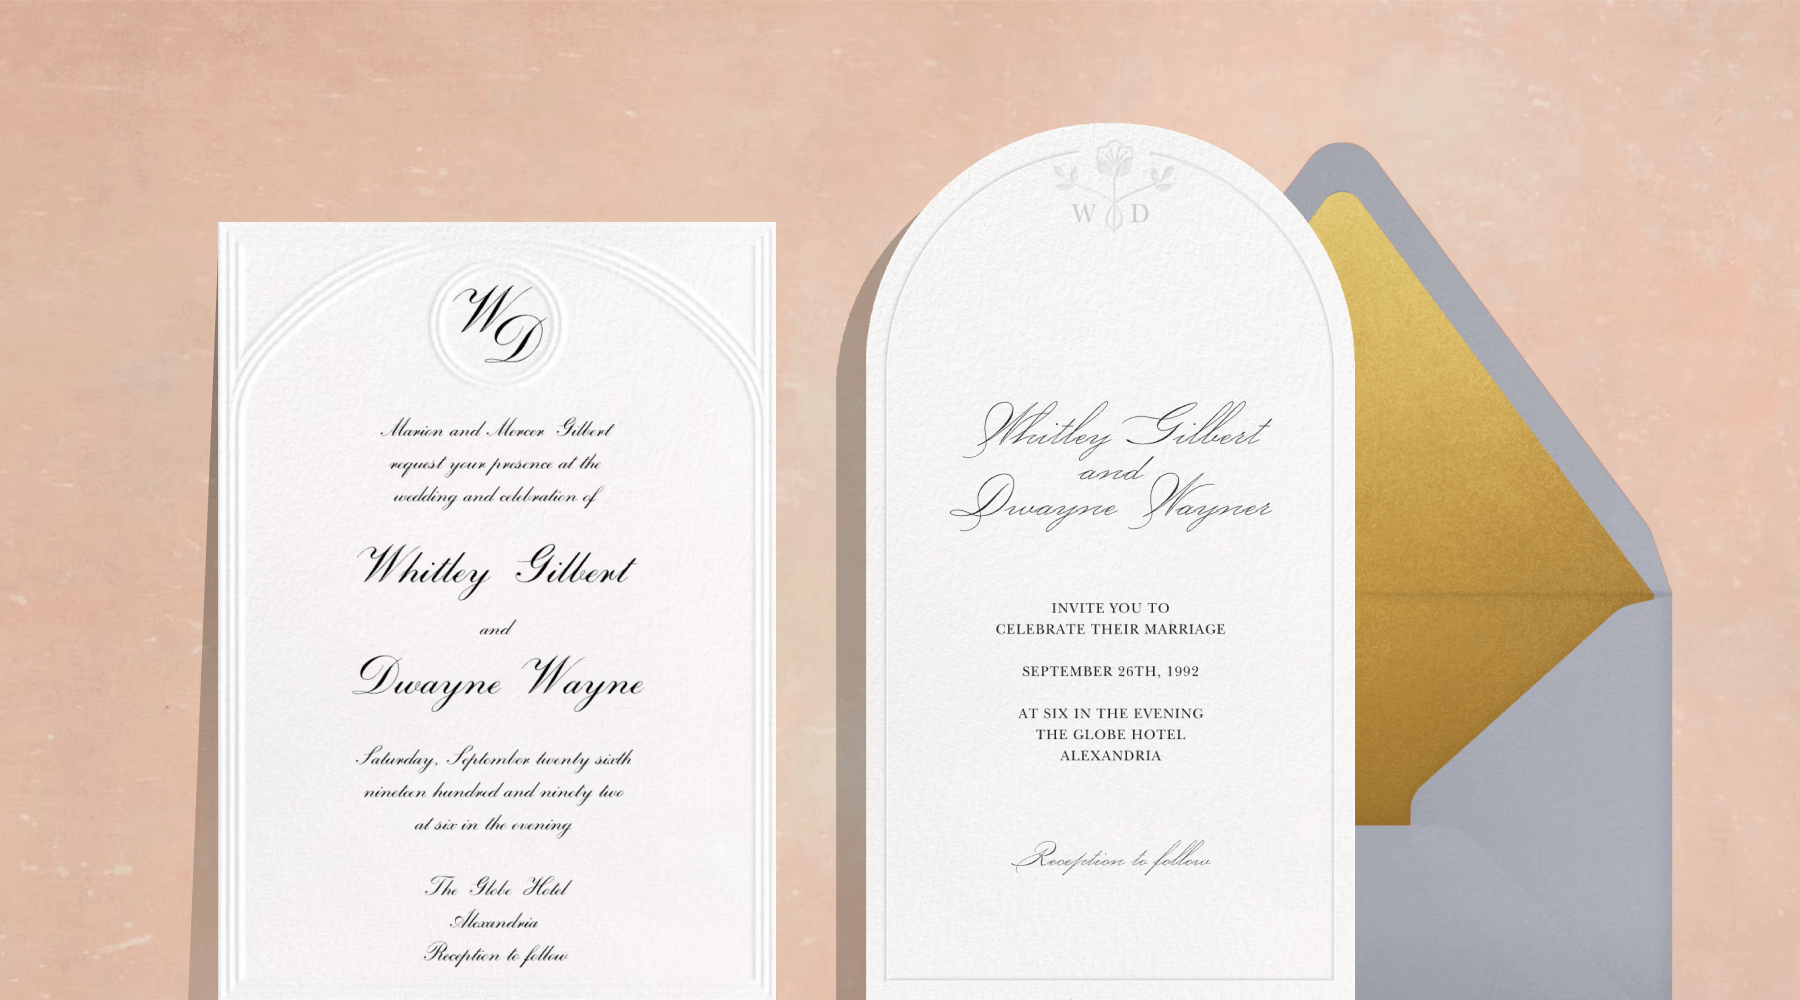 W
D
Marion and Mercer Gilbert
request your presence at the
wedding and celebration of
Whitley Gilbert
and
Dwayne Wayne
Saturday, September twenty sixth
nineteen hundred and ninety two
at six in the evening
The Globe Hotel
Alexandria
Reception to follow
W D
Whitley Gilbert
and
Dwayne Wayner
INVITE YOU TO
CELEBRATE THEIR MARRIAGE
SEPTEMBER 26TH, 1992
AT SIX IN THE EVENING
THE GLOBE HOTEL
ALEXANDRIA
Reception to follow